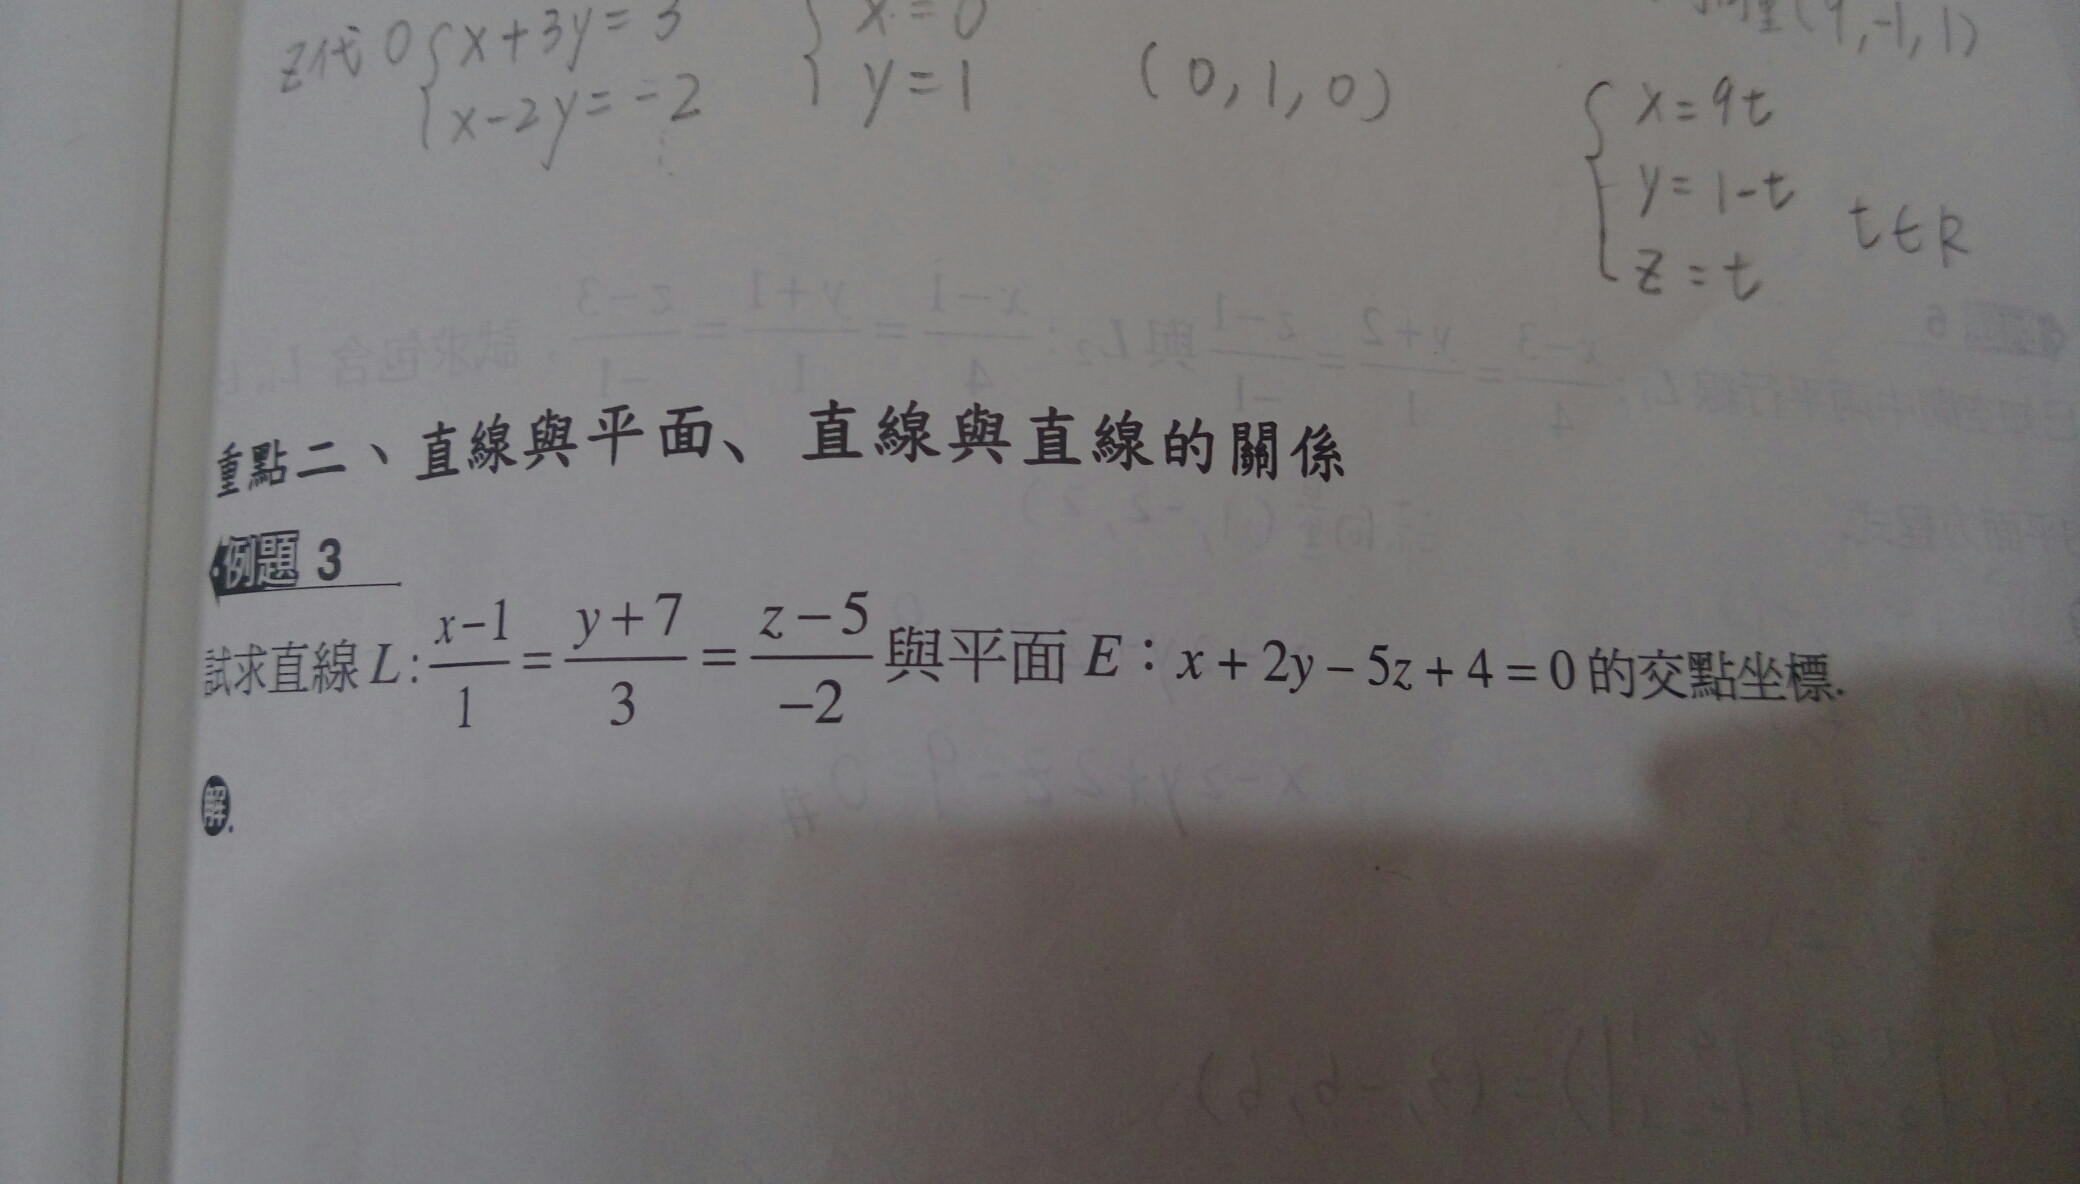 z代0 { x+3y=3 { x=0 向量(9,-1,1)
x-2y=-2 y=1 (0,1,0) { x=9t
y=1-t t∈R
z=t
重點二、直線與平面、直線與直線的關係
例題 3
試求直線L: \frac{x-1}{1} = \frac{y+7}{3} = \frac{z-5}{-2} 與平面 E：x+2y-5z+4=0 的交點坐標.
解.